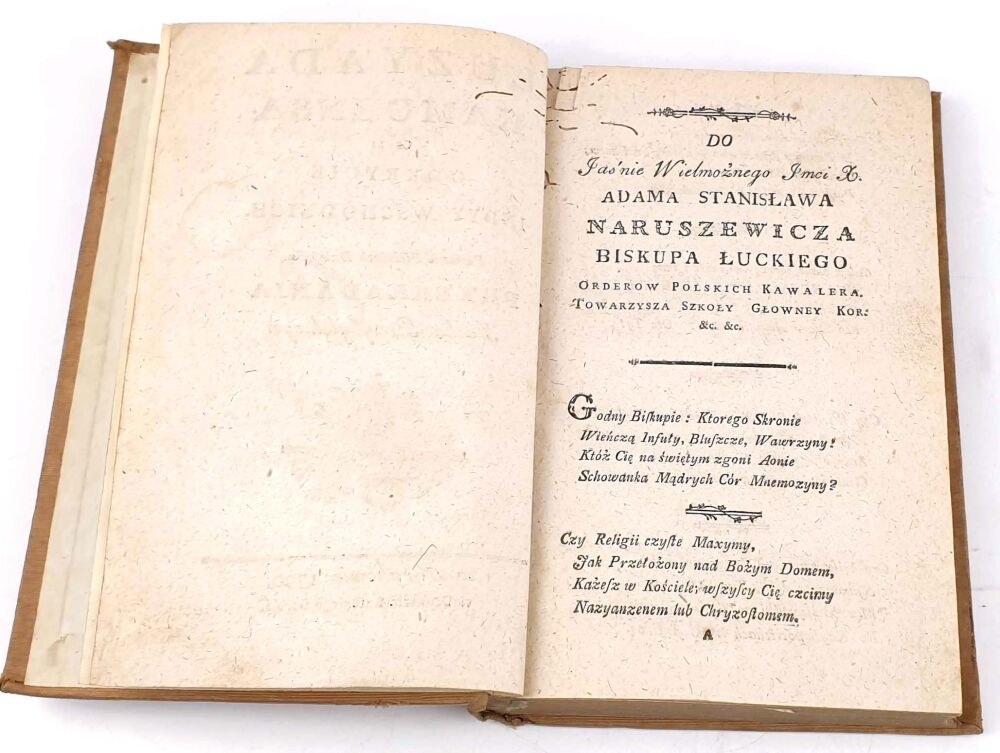 DO
Jaśnie Wielmożnego Jmci X.
ADAMA STANISŁAWA
NARUSZEWICZA
BISKUPA ŁUCKIEGO
ORDEROW POLSKICH KAWALERA.
TOWARZYSZA SZKOŁY GŁOWNEY KOR:
&c. &c.
Godny Biſkupie: Ktorego Skronie
Wieńczą Infuły, Bluſzcze, Wawrzyny!
Któż Cię na świętym zgoni Aonie
Schowanka Mądrych Cór Mnemozyny?
Czy Religii czyſte Maxymy,
Jak Przełożony nad Bożym Domem,
Każeſz w Kościele; wſzyſcy Cię czcimy
Nazyanzenem lub Chryzoſtomem.
A